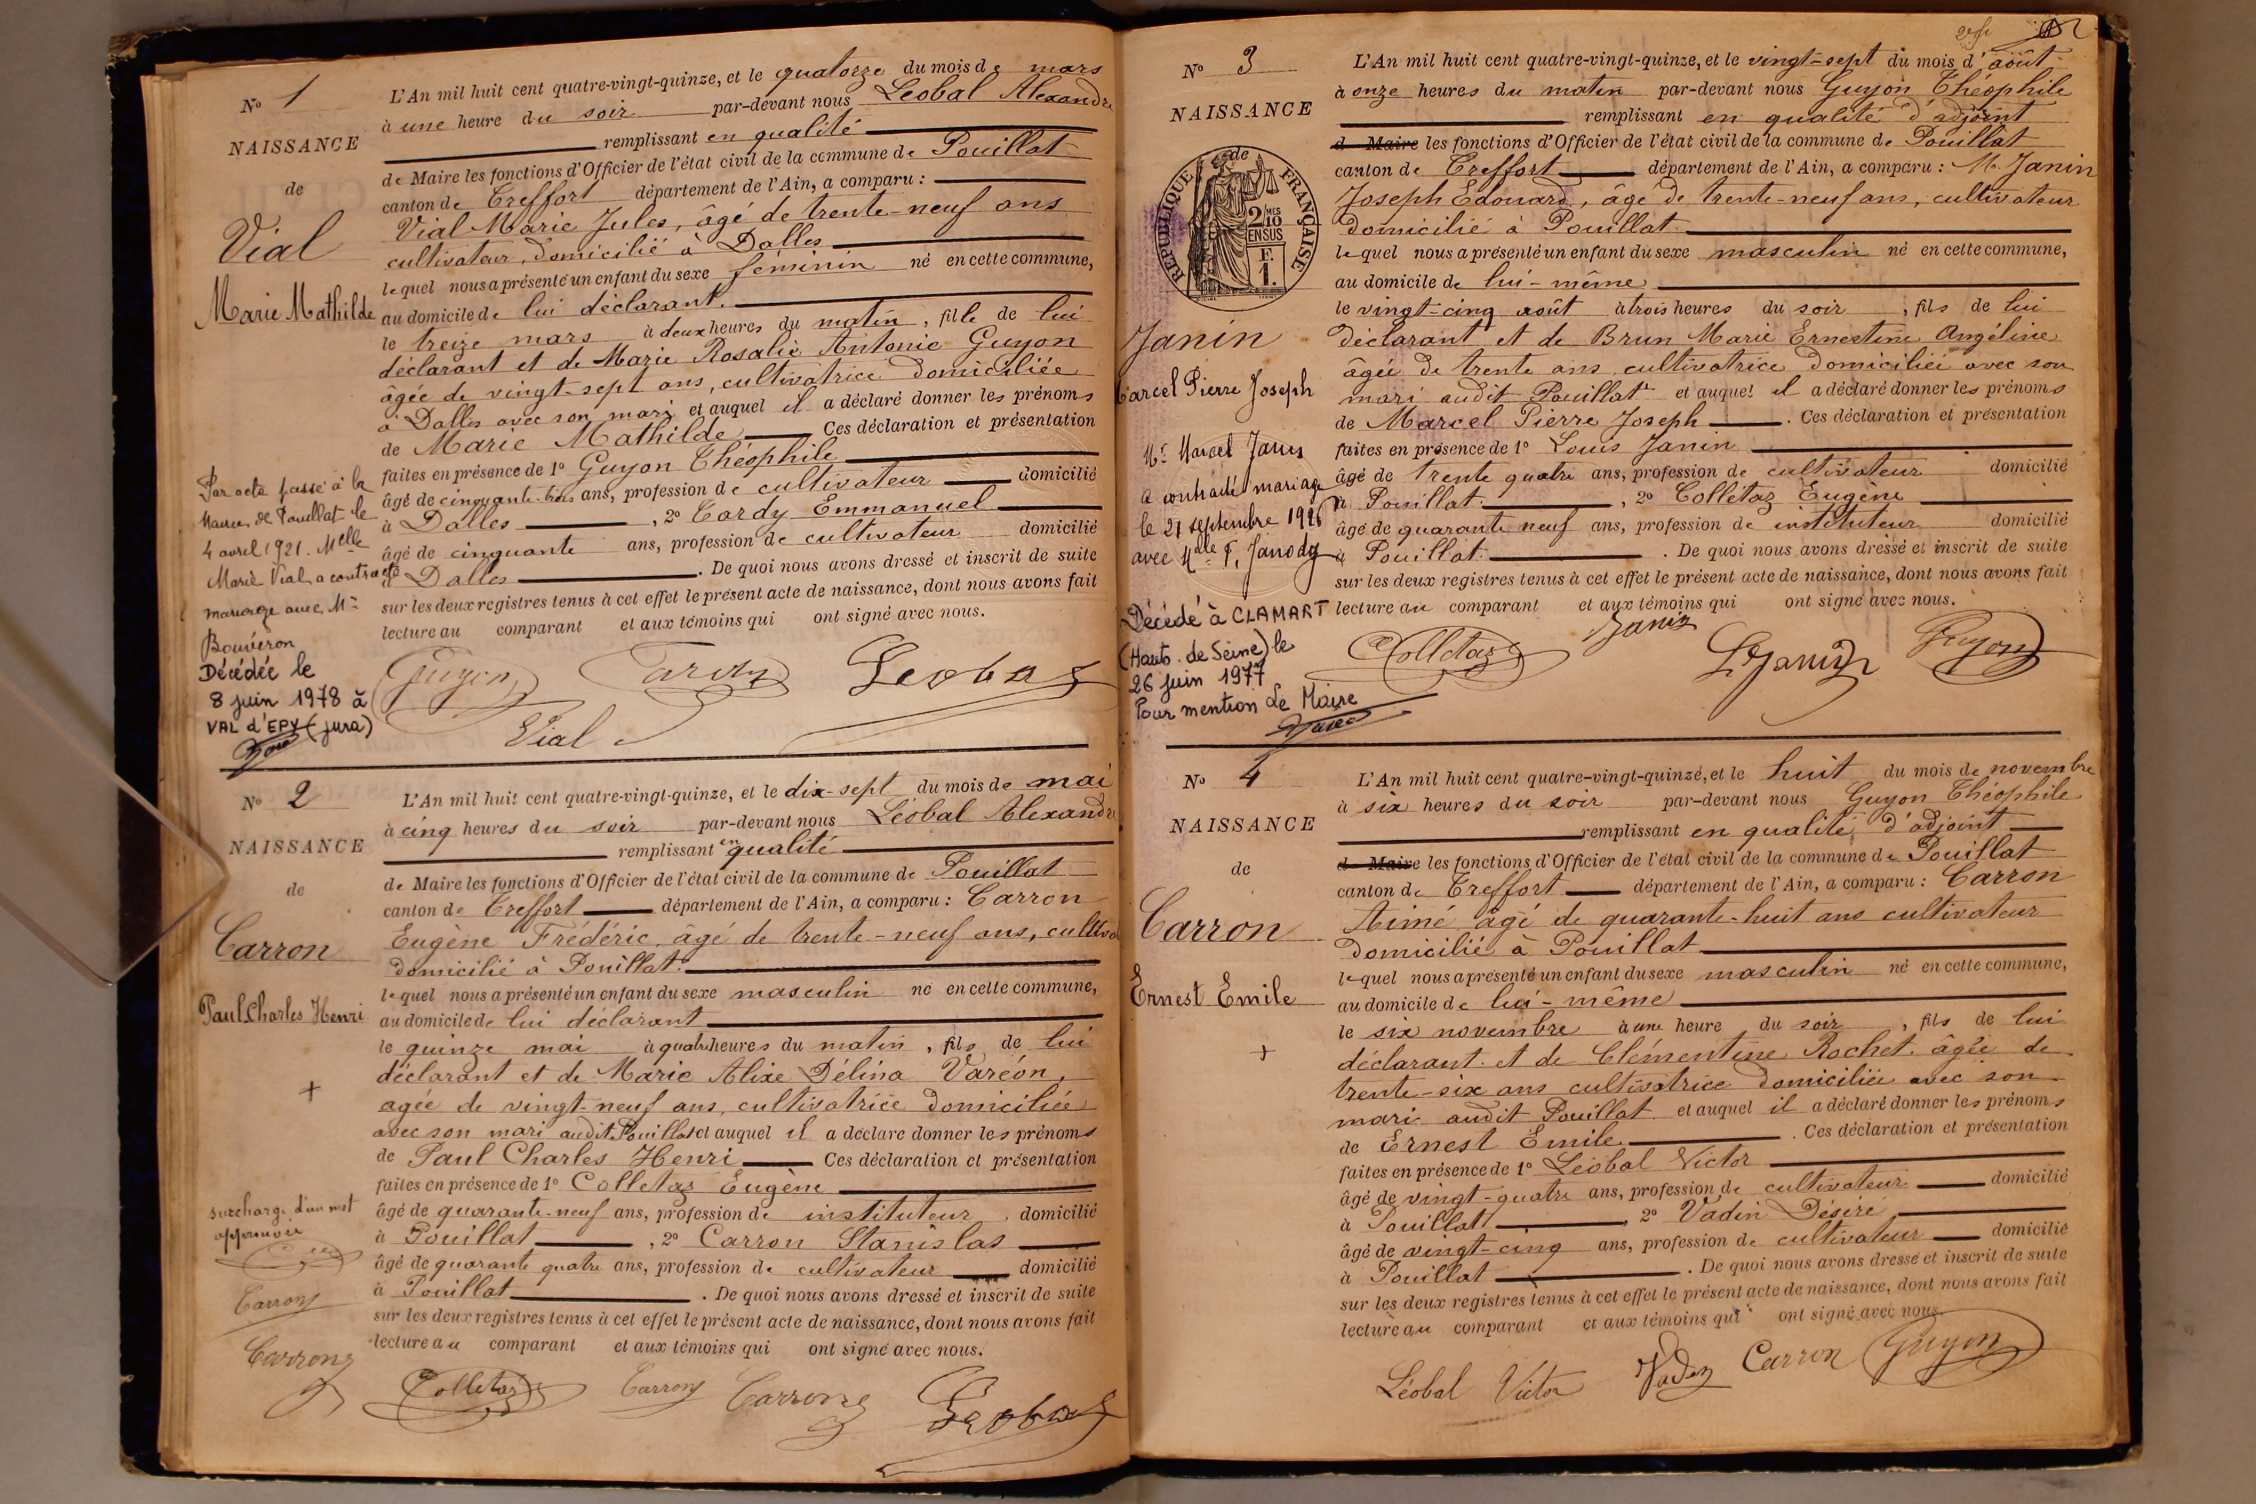 N° 1
NAISSANCE
de
Vial
Marie Mathilde
Par acte passé à la
Mairie de Pouillat le
4 avril 1921. Melle
Marie Vial a contracté
mariage avec Mr
Bouvéron
Décédée le
8 juin 1978 à
VAL d'EPY (jura)
L'An mil huit cent quatre-vingt-quinze, et le quatorze du mois de mars
à une heure du soir par-devant nous Léobal Alexandre
remplissant en qualité
de Maire les fonctions d'Officier de l'état civil de la commune de Pouillat
canton de Treffort département de l'Ain, a comparu :
Vial Marie Jules, âgé de trente-neuf ans
cultivateur, domicilié à Dalles
lequel nous a présenté un enfant du sexe féminin né en cette commune,
au domicile de lui déclarant.
le treize mars à deux heures du matin, fille de lui
déclarant et de Marie Rosalie Antonie Guyon
âgée de vingt-sept ans, cultivatrice domiciliée
à Dalles avec son mari et auquel il a déclaré donner les prénoms
de Marie Mathilde Ces déclaration et présentation
faites en présence de 1° Guyon Théophile
âgé de cinquante-trois ans, profession de cultivateur domicilié
à Dalles, 2° Tardy Emmanuel
âgé de cinquante ans, profession de cultivateur domicilié
à Dalles. De quoi nous avons dressé et inscrit de suite
sur les deux registres tenus à cet effet le présent acte de naissance, dont nous avons fait
lecture au comparant et aux témoins qui ont signé avec nous.
Guyon Tardy Léobal
Vial
N° 2
NAISSANCE
de
Carron
Paul Charles Henri
+
surcharge d'un mot
approuvée
Carron
Carron
L'An mil huit cent quatre-vingt-quinze, et le dix-sept du mois de mai
à cinq heures du soir par-devant nous Léobal Alexandre
remplissant en qualité
de Maire les fonctions d'Officier de l'état civil de la commune de Pouillat
canton de Treffort département de l'Ain, a comparu : Carron
Eugène Frédéric, âgé de trente-neuf ans, cultiva
domicilié à Pouillat.
lequel nous a présenté un enfant du sexe masculin né en cette commune,
au domicile de lui déclarant
le quinze mai à quatre heures du matin, fils de lui
déclarant et de Marie Alixe Délina Varéon,
agée de vingt-neuf ans, cultivatrice domiciliée
avec son mari audit Pouillat et auquel il a déclaré donner les prénoms
de Paul Charles Henri Ces déclaration et présentation
faites en présence de 1° Colletaz Eugène
âgé de quarante-neuf ans, profession de instituteur. domicilié
à Pouillat, 2° Carron Stanislas
âgé de quarante quatre ans, profession de cultivateur domicilié
à Pouillat. De quoi nous avons dressé et inscrit de suite
sur les deux registres tenus à cet effet le présent acte de naissance, dont nous avons fait
lecture au comparant et aux témoins qui ont signé avec nous.
Colletaz Carron Carron Léobal
N° 3
NAISSANCE
de
RÉPUBLIQUE FRANÇAISE
2/10 MES
EN SUS
F.
1.
Janin
Marcel Pierre Joseph
Mr Marcel Janin
a contracté mariage
le 21 septembre 1926
avec Mdlle F. Janody
Décédé à CLAMART
(Hauts. de Seine) le
26 juin 1977
Pour mention Le Maire
L'An mil huit cent quatre-vingt-quinze, et le vingt-sept du mois d'août
à onze heures du matin par-devant nous Guyon Théophile
remplissant en qualité d'adjoint
d Maire les fonctions d'Officier de l'état civil de la commune de Pouillat
canton de Treffort département de l'Ain, a comparu : M. Janin
Joseph Edouard, âgé de trente-neuf ans, cultivateur
domicilié à Pouillat.
lequel nous a présenté un enfant du sexe masculin né en cette commune,
au domicile de lui-même
le vingt-cinq août à trois heures du soir, fils de lui
déclarant et de Brun Marie Ernestine Angéline
âgée de trente ans cultivatrice domiciliée avec son
mari audit Pouillat et auquel il a déclaré donner les prénoms
de Marcel Pierre Joseph. Ces déclaration et présentation
faites en présence de 1° Louis Janin
âgé de trente quatre ans, profession de cultivateur domicilié
à Pouillat., 2° Collétaz Eugène
âgé de quarante neuf ans, profession de instituteur domicilié
à Pouillat. De quoi nous avons dressé et inscrit de suite
sur les deux registres tenus à cet effet le présent acte de naissance, dont nous avons fait
lecture au comparant et aux témoins qui ont signé avec nous.
Colletaz Janin L. Janin Guyon
N° 4
NAISSANCE
de
Carron
Ernest Emile
+
L'An mil huit cent quatre-vingt-quinze, et le huit du mois de novembre
à six heures du soir par-devant nous Guyon Théophile
remplissant en qualité d'adjoint
d Maire les fonctions d'Officier de l'état civil de la commune de Pouillat
canton de Treffort département de l'Ain, a comparu : Carron
Aimé âgé de quarante-huit ans cultivateur
domicilié à Pouillat
lequel nous a présenté un enfant du sexe masculin né en cette commune,
au domicile de lui-même
le six novembre à une heure du soir, fils de lui
déclarant. et de Clémentine Rochet. âgée de
trente-six ans cultivatrice domiciliée avec son
mari audit Pouillat et auquel il a déclaré donner les prénoms
de Ernest Emile. Ces déclaration et présentation
faites en présence de 1° Léobal Victor
âgé de vingt-quatre ans, profession de cultivateur domicilié
à Pouillat, 2° Vadin Désiré
âgé de vingt-cinq ans, profession de cultivateur domicilié
à Pouillat. De quoi nous avons dressé et inscrit de suite
sur les deux registres tenus à cet effet le présent acte de naissance, dont nous avons fait
lecture au comparant et aux témoins qui ont signé avec nous.
Léobal Victor Vadin Carron Guyon